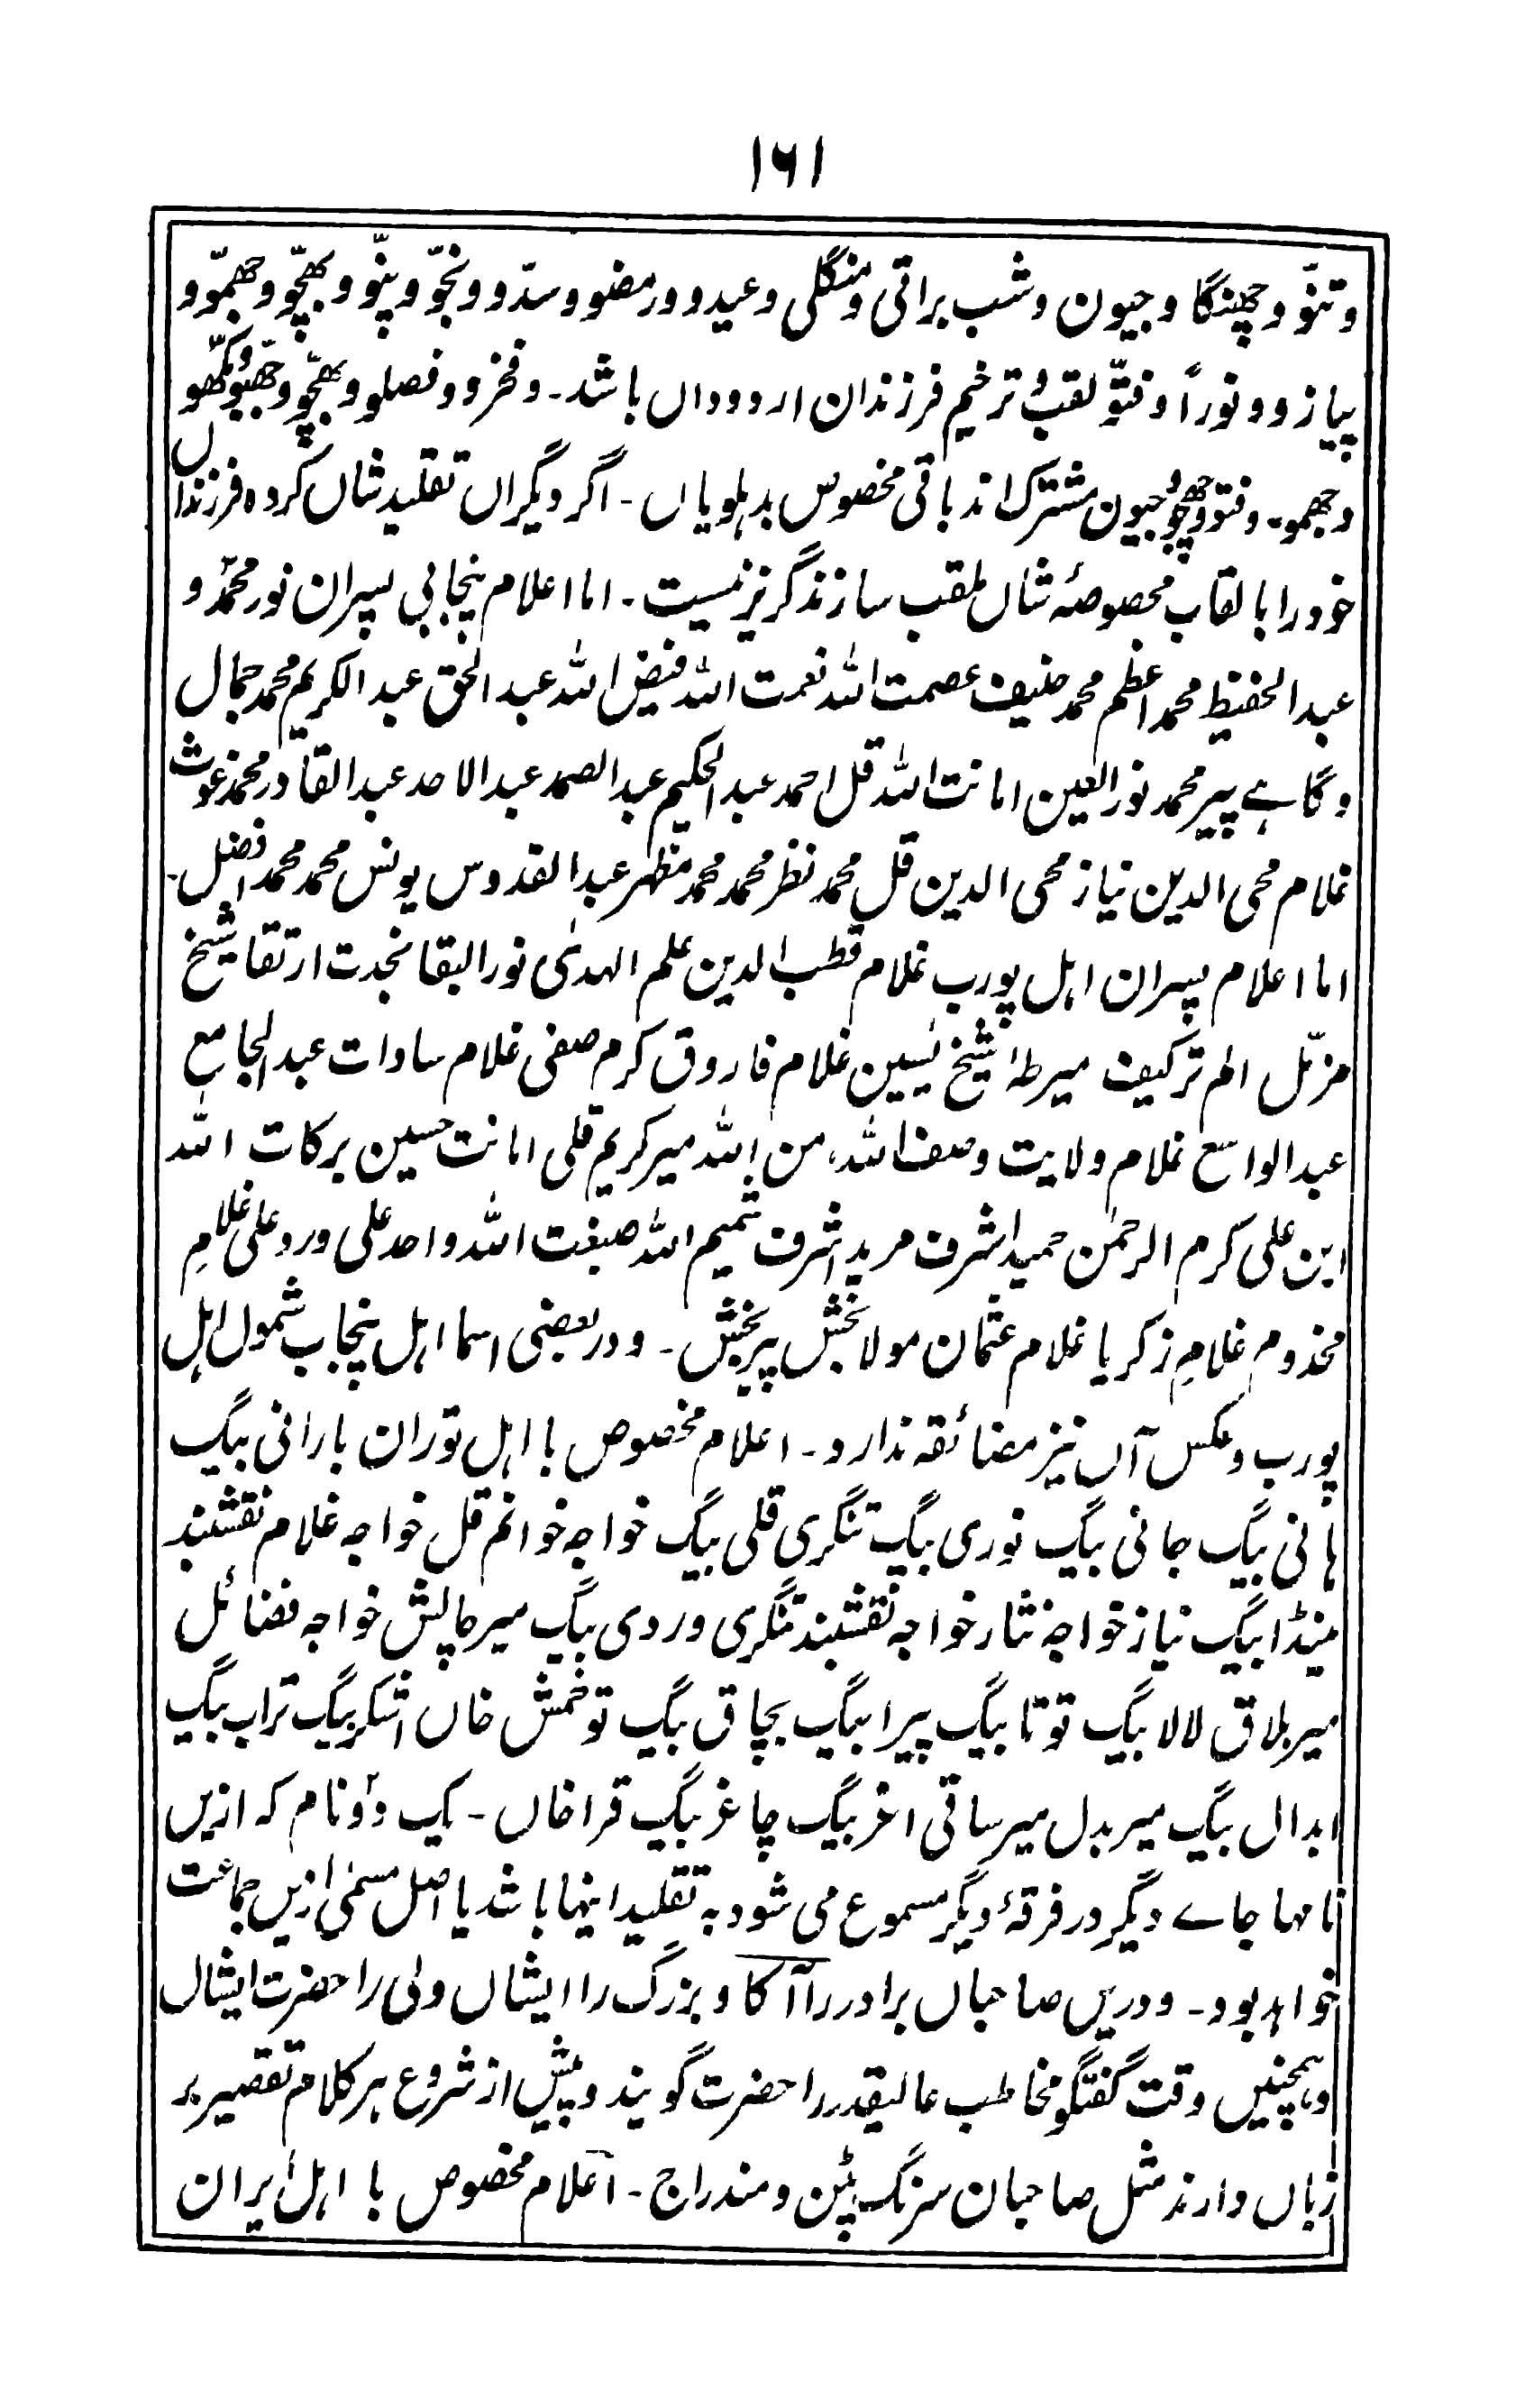 ۱۶۱
وتنّو و چھنگا و جیون و شب براتی و منگلی و عیدو و رمضو و سدّو و نجّو و پنّو و بھچّو و جھمّو و
پیازو و نوراً و فتّو لقب و ترخیم فرزندان اردو داں باشد۔ و فخرو و فصلو و بھچّو و چھبّو و کھّو
و جھمو۔ و فتو و چھجّو و جیون مشترک اند باقی مخصوص بدہلویاں۔ اگر دیگراں تقلید شاں کردہ فرزنداں
خود را بالقاب مخصوصۂ شاں ملقب سازند گریز نیست۔ اما اعلام پنجابی پسران نور محمّد و
عبد الحفیظ محمد اعظم محمد حنیف عصمت اللہ نعمت اللہ فیض اللہ عبد الحق عبد الکریم محمد جمال
و گاہے پیر محمد نور العین امانت اللہ قل احمد عبد الحکیم عبد الصمد عبد الاحد عبد القادر محمد غوث
غلام محی الدین نیاز محی الدین قل محمد نظر محمد محمد مظہر عبد القدوس یونس محمد محمد افضل۔
اما اعلام پسران اہل پورب غلام قطب الدین علم الہدیٰ نور البقا نجدت ارتقا شیخ
مزمّل الم ترکیف میر طٰہٰ شیخ یٰسین غلام فاروق کرم صفی غلام سادات عبد الجامع
عبد الواسع غلام ولایت وصف اللہ، من اللہ میر کریم قلی امانت حسین برکات اللہ
ابن علی کرم الرحمٰن حمید اشرف مرید اشرف شمیم اللہ صبغت اللہ واحد علی ورد علی غلامِ
مخدوم غلامِ زکریا غلام عثمان مولا بخش پیر بخش۔ و در بعضی اسما اہل پنجاب شمول اہل
پورب و عکس آں نیز مضائقہ ندارد۔ اعلام مخصوص با اہل توران بارانی بیگ
ہانی بیگ جانی بیگ نوری بیگ تنگری قلی بیگ خواجہ خوانم قل خواجہ غلام نقشبند
مینڈا بیگ نیاز خواجہ نثار خواجہ نقشبند تنگری وردی بیگ میر کالپش خواجہ فضائل
میر بلاق لالا بیگ توتا بیگ پیرا بیگ بچاق بیگ توخمش خاں اشکر بیگ تراب بیگ
ابدال بیگ میر بدل میر ساقی اغر بیگ چاغر بیگ قرا خاں۔ یک و دو نام کہ ازیں
نامہا جاے دیگر در فرقۂ دیگر مسموع می شود بہ تقلید اینہا باشد یا اصل مسمیٰ ازیں جماعت
خواہد بود۔ و دریں صاحباں برادر را آکا و بزرگ را ایشاں ولی را حضرت ایشاں
و ہمچنیں وقت گفتگو مخاطب عالیقدر را حضرت گویند و پیش از شروع ہر کلام تقصیر بر
زباں دارند مثل صاحبان سرنگ پٹن و مندراج۔ اعلام مخصوص با اہل ایران